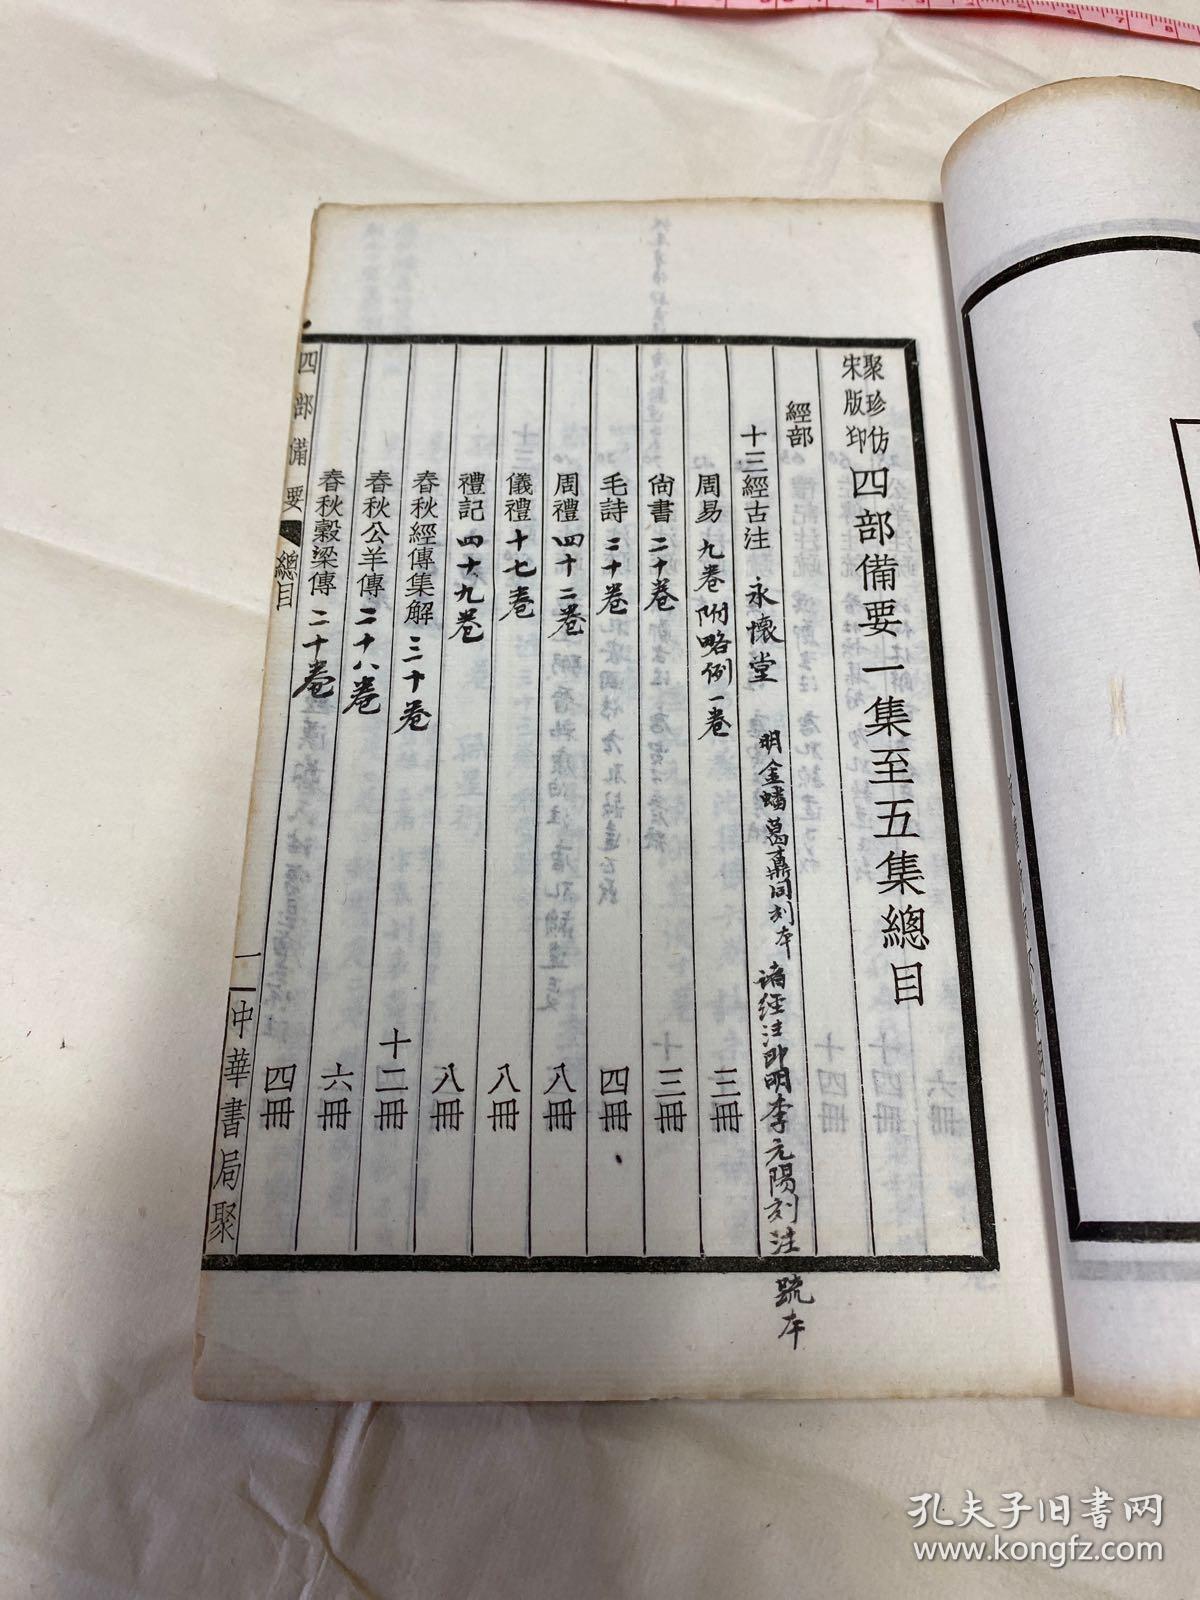 聚珍仿宋版印四部備要一集至五集總目
經部
十三經古注 永懷堂 明金蟠葛鼒同刻本 諸經注即明李元陽刻注疏本
周易九卷附略例一卷 三冊
尙書二十卷 三冊
毛詩二十卷 四冊
周禮四十二卷 八冊
儀禮十七卷 八冊
禮記四十九卷 八冊
春秋經傳集解三十卷 十二冊
春秋公羊傳二十八卷 六冊
春秋穀梁傳二十卷 四冊
四部備要 總目 一 中華書局聚
孔夫子旧书网
www.kongfz.com